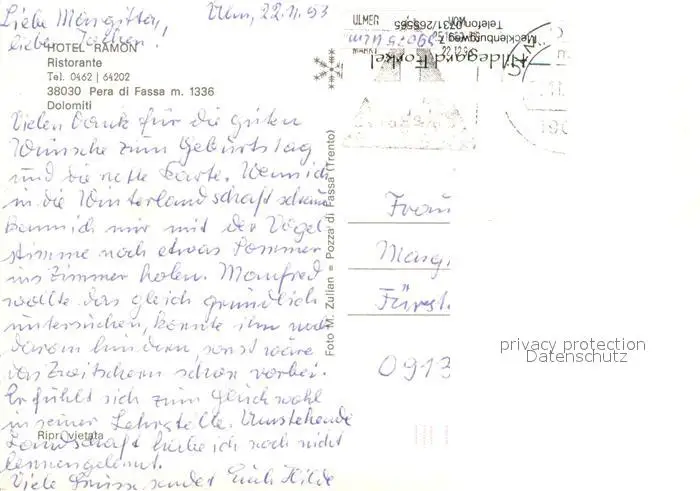 Liebe Margitta, Ulm, 22.11.93
lieber Jochen!
HOTEL RAMON
Ristorante
Tel. 0462 | 64202
38030 Pera di Fassa m. 1336
Dolomiti
Vielen Dank für die guten
Wünsche zum Geburtstag
und die nette Karte. Wenn ich
in die Winterlandschaft schaue
kann ich mir mit der Vogel
stimme noch etwas Sommer
ins Zimmer holen. Manfred
wollte das gleich gründlich
untersuchen, konnte ihn noch
daran hindern, sonst wäre
das Zwitschern schon vorbei.
Er fühlt sich zum Glück wohl
in seiner Lehrstelle. Umstehende
Landschaft habe ich noch nicht
kennengelernt.
Viele Grüsse sendet Euch Hilde
Ripr. vietata
Foto M. Zulian = Pozza di Fassa (Trento)
ULMER
VOM
22.12.93
Hildegard Forkel
Mecklenburgweg 7
Telefon 0731/265565
Frau
Marg
Fürst
0913
privacy protection
Datenschutz